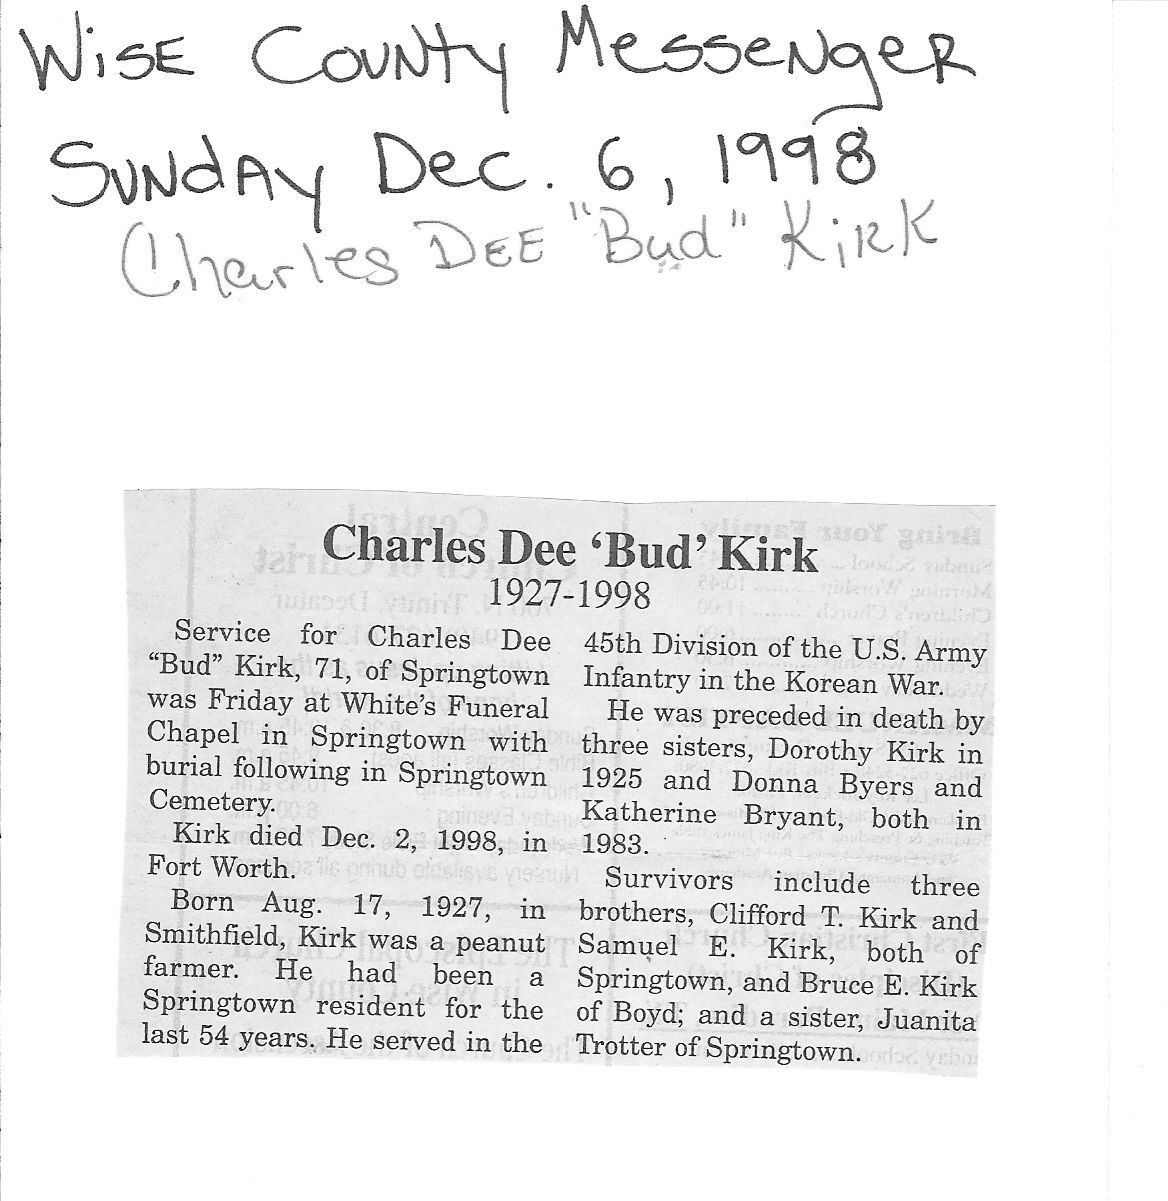 Wise County Messenger
Sunday Dec. 6, 1998
Charles Dee "Bud" Kirk
Charles Dee ‘Bud’ Kirk
1927-1998
Service for Charles Dee
“Bud” Kirk, 71, of Springtown
was Friday at White’s Funeral
Chapel in Springtown with
burial following in Springtown
Cemetery.
Kirk died Dec. 2, 1998, in
Fort Worth.
Born Aug. 17, 1927, in
Smithfield, Kirk was a peanut
farmer. He had been a
Springtown resident for the
last 54 years. He served in the
45th Division of the U.S. Army
Infantry in the Korean War.
He was preceded in death by
three sisters, Dorothy Kirk in
1925 and Donna Byers and
Katherine Bryant, both in
1983.
Survivors include three
brothers, Clifford T. Kirk and
Samuel E. Kirk, both of
Springtown, and Bruce E. Kirk
of Boyd; and a sister, Juanita
Trotter of Springtown.